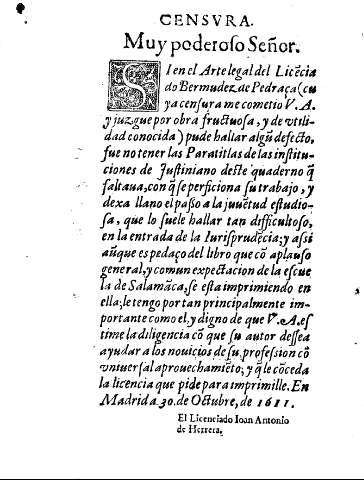 CENSVRA.
Muy poderoso Señor.
SI en el Arte legal del Licẽcia
do Bermudez de Pedraça (cu
ya censura me cometio V. A.
y juzgue por obra fructuosa, y de vtili-
dad conocida) pude hallar algũ defecto,
fue no tener las Paratitlas de las institu-
ciones de Iustiniano deste quaderno q̃
faltaua, con q̃ se perficiona su trabajo, y
dexa llano el passo a la juuẽtud estudio-
sa, que lo suele hallar tan difficultoso,
en la entrada de la Iurisprudẽcia; y assi
aũque es pedaço del libro que cõ aplauso
general, y comun expectacion de la escue
la de Salamãca, se esta imprimiendo en
ella; le tengo por tan principalmente im-
portante como el, y digno de que V. A. es
time la diligencia cõ que su autor dessea
ayudar a los nouicios de su profession cõ
vniuersal aprouechamiẽto; y q̃ le cõceda
la licencia que pide para imprimille. En
Madrid a 30. de Octubre, de 1611.
El Licenciado Ioan Antonio
de Herrera.